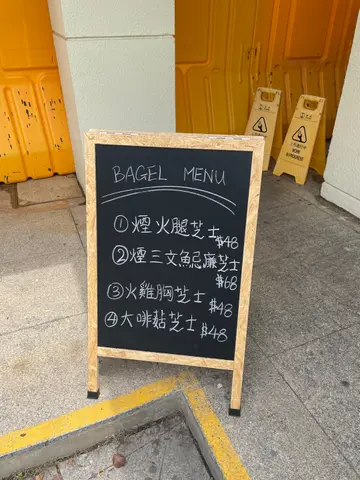 BAGEL MENU
①煙火腿芝士 $48
②煙三文魚忌廉芝士 $68
③火雞胸芝士 $48
④大啡菇芝士 $48